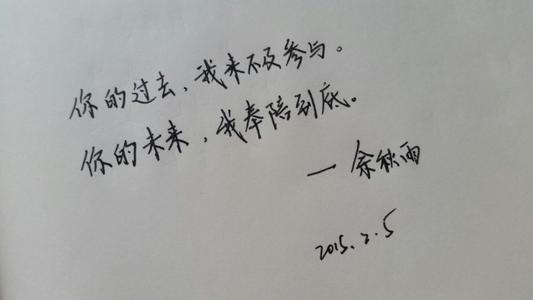 你的过去，我来不及参与。
你的未来，我奉陪到底。
— 余秋雨
2015.2.5